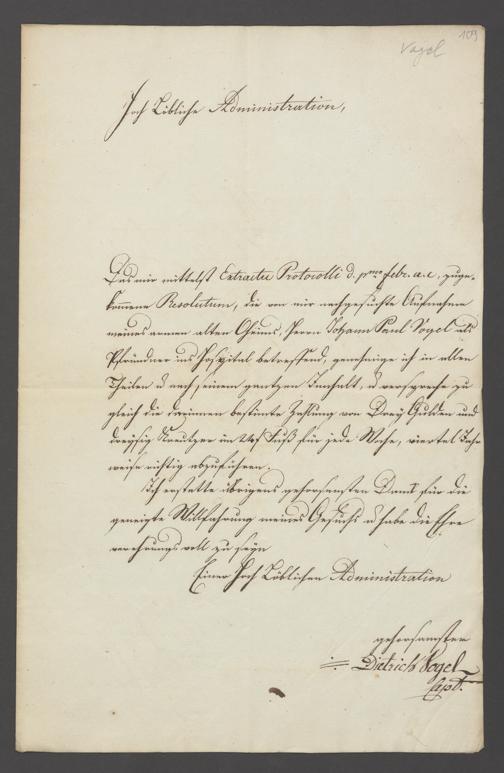 Vogel
109
Hoch Löbliche Administration,
Das mir mittelst Extractu Protocolli d. pmo febr. a. c. zuge-
kommene Resolutum, die von mir nachgesuchte Aufnahme
meines armen alten Oheims, Herrn Johann Paul Vogel als
Pfründner ins Hospital betreffend, genehmige ich in allen
Theilen u nach seinem gantzen Innhalt, u verspreche zu
gleich die darinnen bestimte Zahlung von Drey Gulden und
dreysig Kreutzer im Fuß für jede Woche, viertel Jahr
weise richtig abzuführen.
Ich erstatte übrigens gehorsamsten Dank für die
geneigte Willfahrung meines Gesuchs u habe die Ehre
verehrungsvoll zu seyn
Einer Hoch Löblichen Administration
gehorsamster
Dietrich Vogel